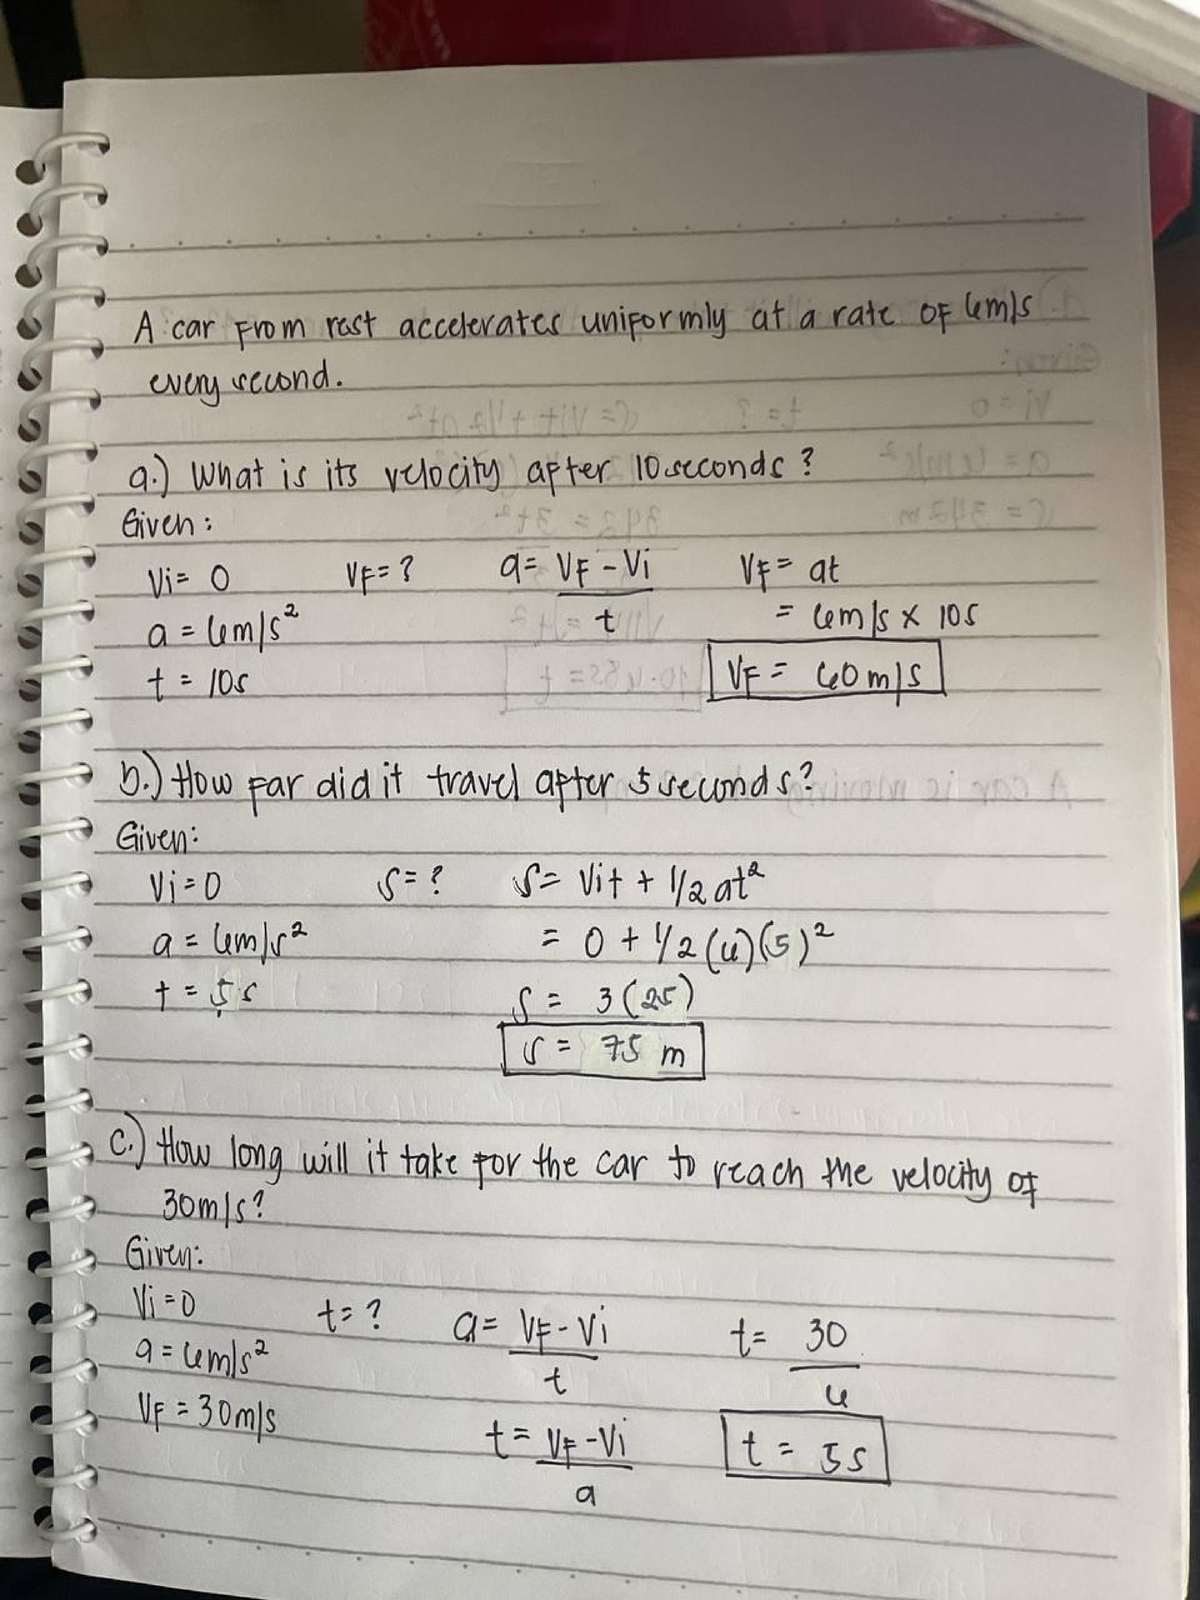 A car from rest accelerates uniformly at a rate of 6m/s
every second.
a.) What is its velocity after 10 seconds?
Given:
Vi = 0 VF = ? a = VF - Vi / t VF = at
a = 6m/s² = 6m/s x 10s
t = 10s VF = 60m/s
b.) How far did it travel after 5 seconds?
Given:
Vi = 0 S = ? S = Vit + 1/2 at²
a = 6m/s² = 0 + 1/2 (6)(5)²
t = 5s S = 3(25)
S = 75 m
c.) How long will it take for the car to reach the velocity of
30m/s?
Given:
Vi = 0 t = ? a = VF - Vi / t t = 30 / 6
a = 6m/s²
VF = 30m/s t = VF - Vi / a t = 5s